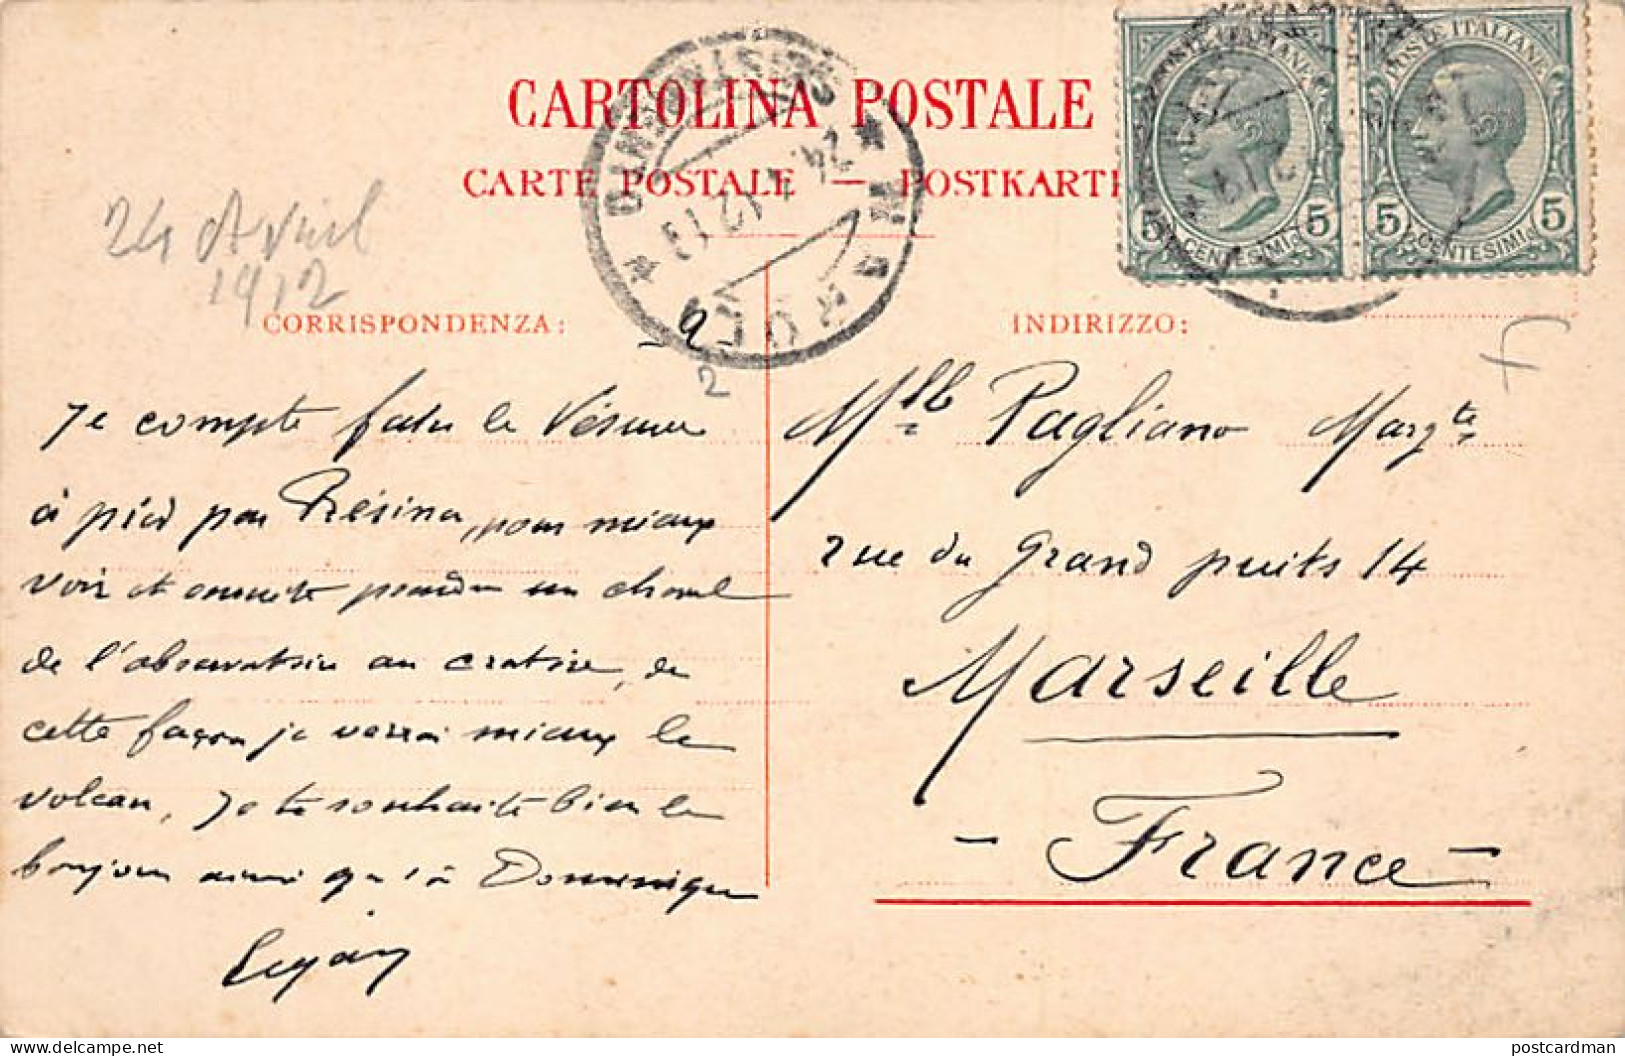 CARTOLINA POSTALE
CARTE POSTALE — POSTKARTE
24 Avril
1912
POSTE ITALIANE
5 CENTESIMI 5
POSTE ITALIANE
5 CENTESIMI 5
24.4.12 19
CORRISPONDENZA:
2
Je compte faire le Vésuve
à pied par Résina, pour mieux
voir et ensuite prendre un cheval
de l'observatoire au cratère, de
cette façon je verrai mieux le
volcan, Je te souhaite bien le
bonjour ainsi qu'à Dominique
INDIRIZZO:
Mlle Pagliano Margte
rue du Grand puits 14
Marseille
- France -
postcardman